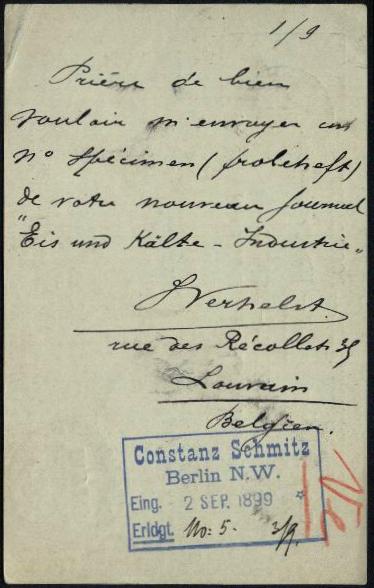 1/9
Prière de bien
vouloir m'envoyer un
n° spécimen (probeheft)
de votre nouveau journal
"Eis und Kälte-Industrie"
Verhelst.
rue des Récollets 35
Louvain
Belgien.
Constanz Schmitz
Berlin N.W.
Eing. 2 SEP. 1899 *
Erldgt. No: 5. 3/9.